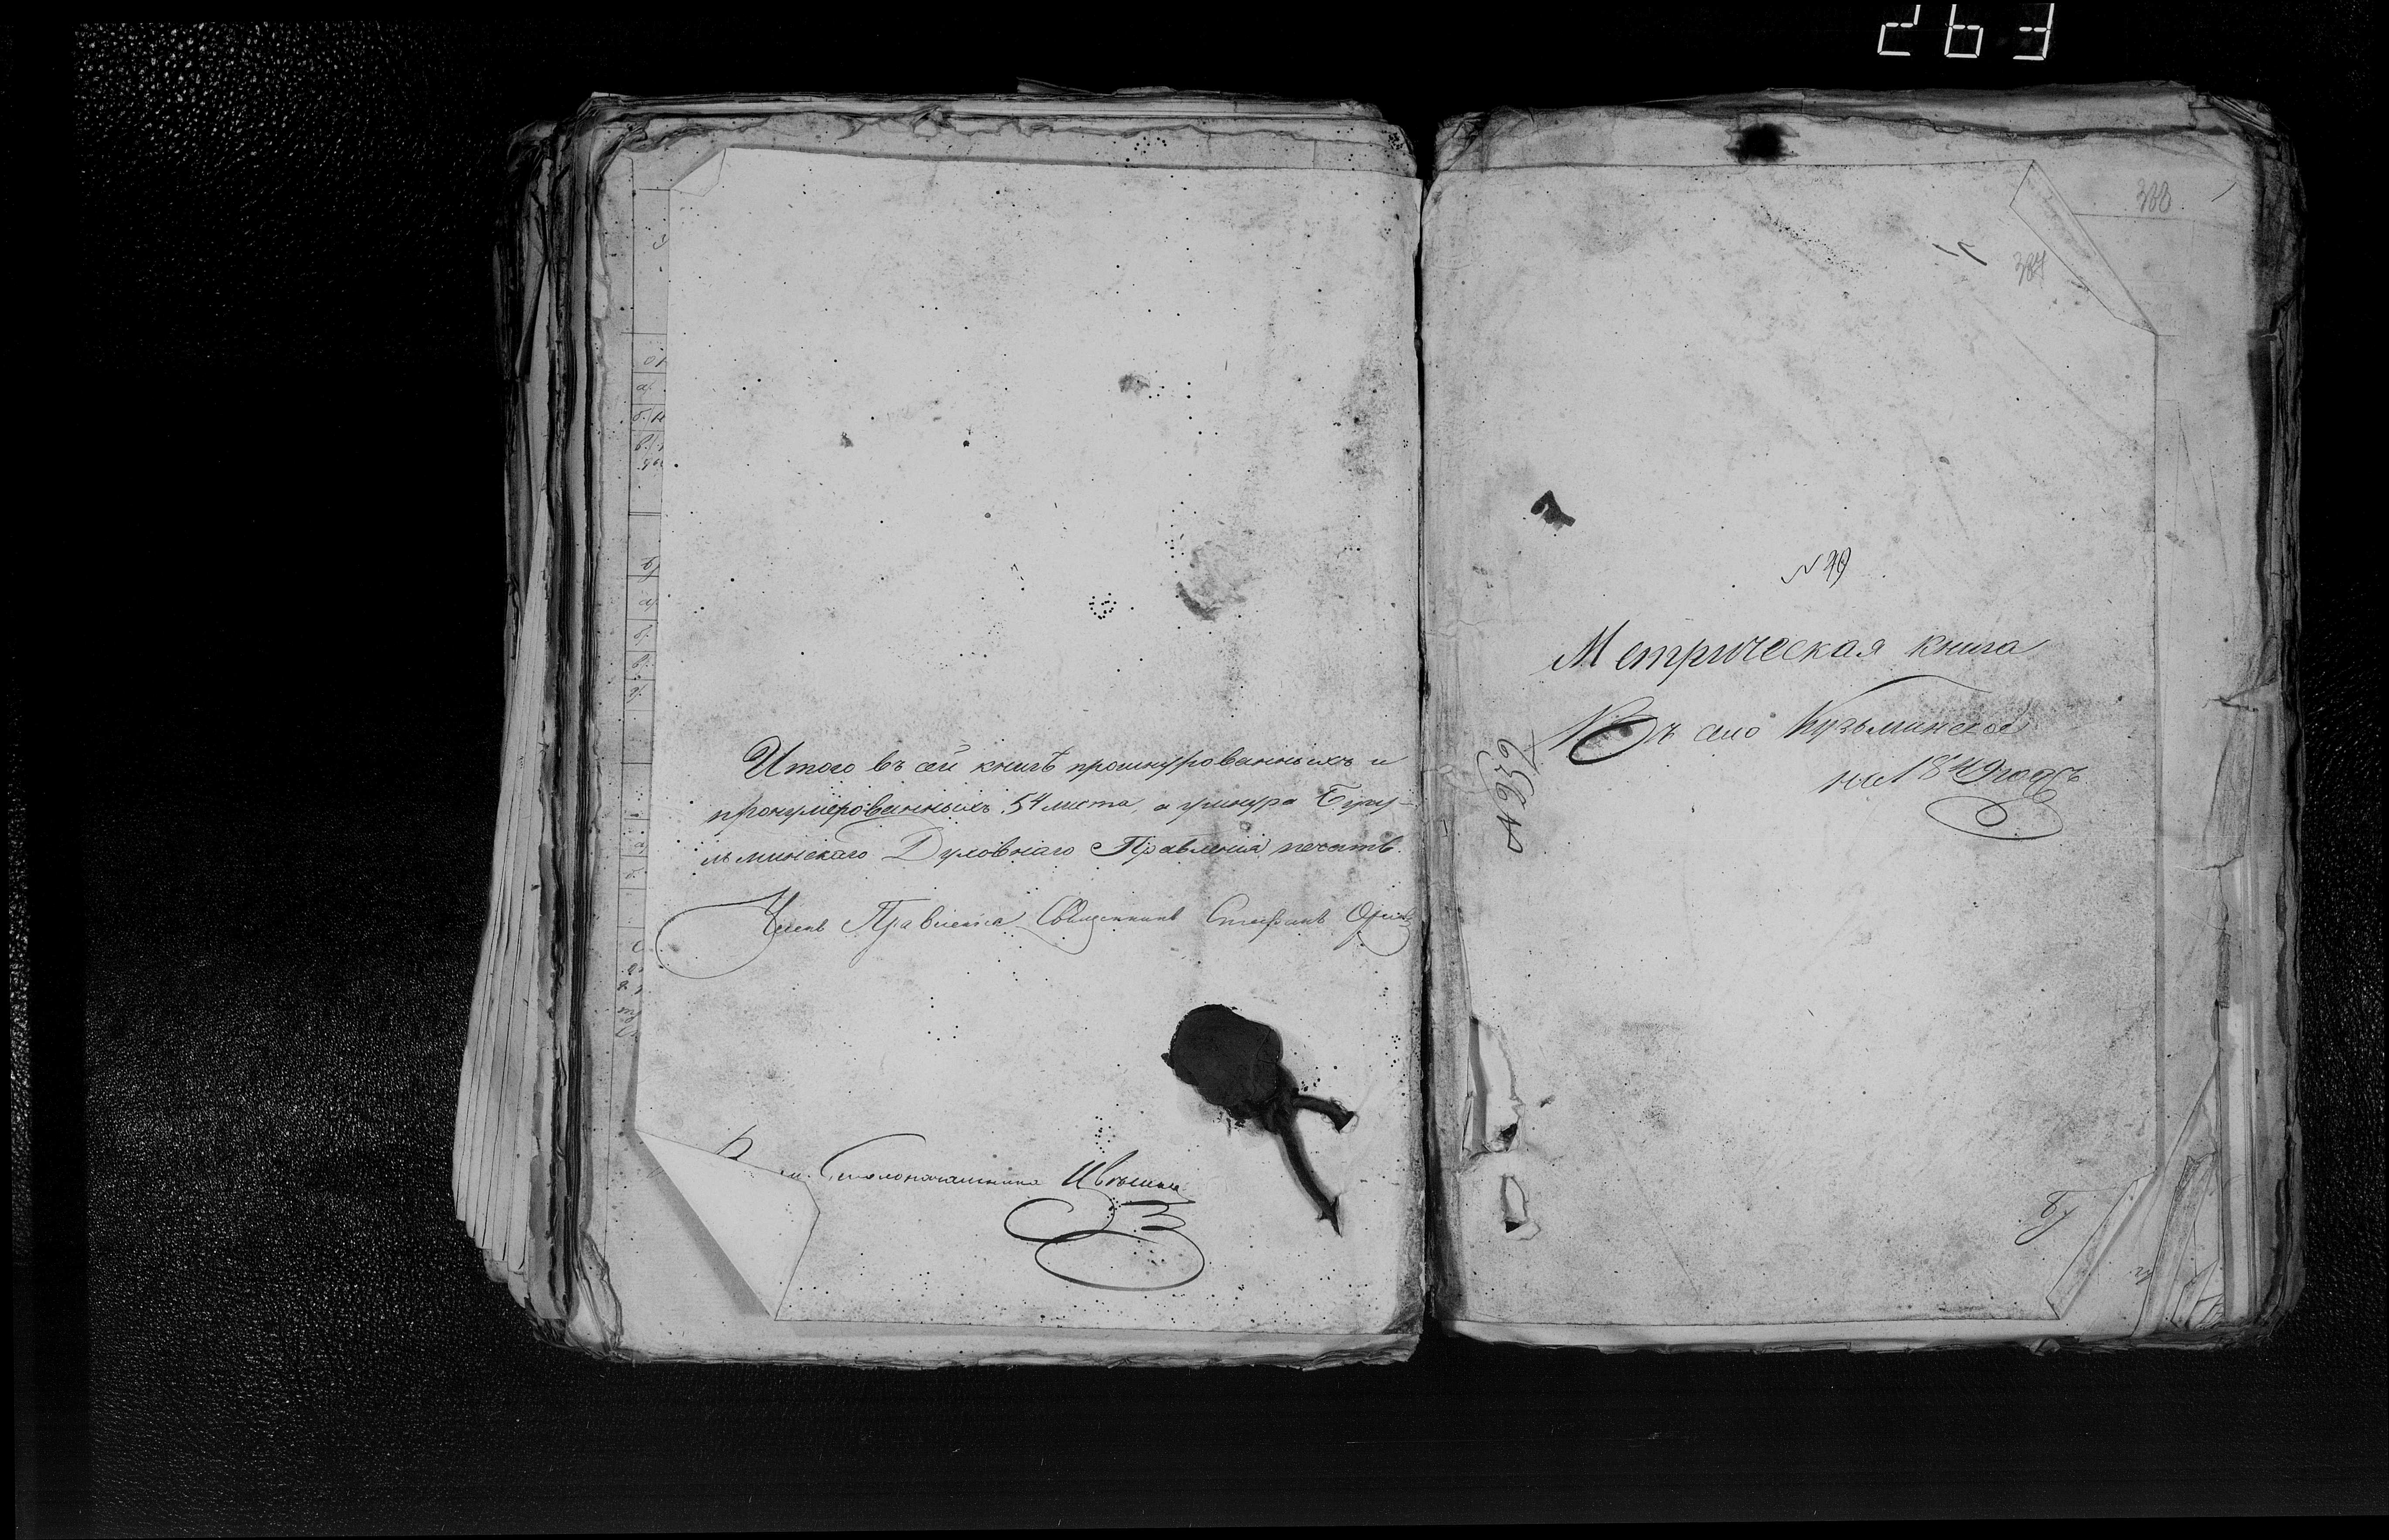 263
Итого въ сей книгѣ прошнурованныхъ и
пронумерованныхъ 54 листа, а у шнура Бугу-
льминскаго Духовнаго Правленія печать.
Членъ Правленія Священникъ Стефанъ
Столоначальника
388
384
N 99
Метрическая книга
Въ село Кузьминское
на 1849 годъ
N 952
Бу